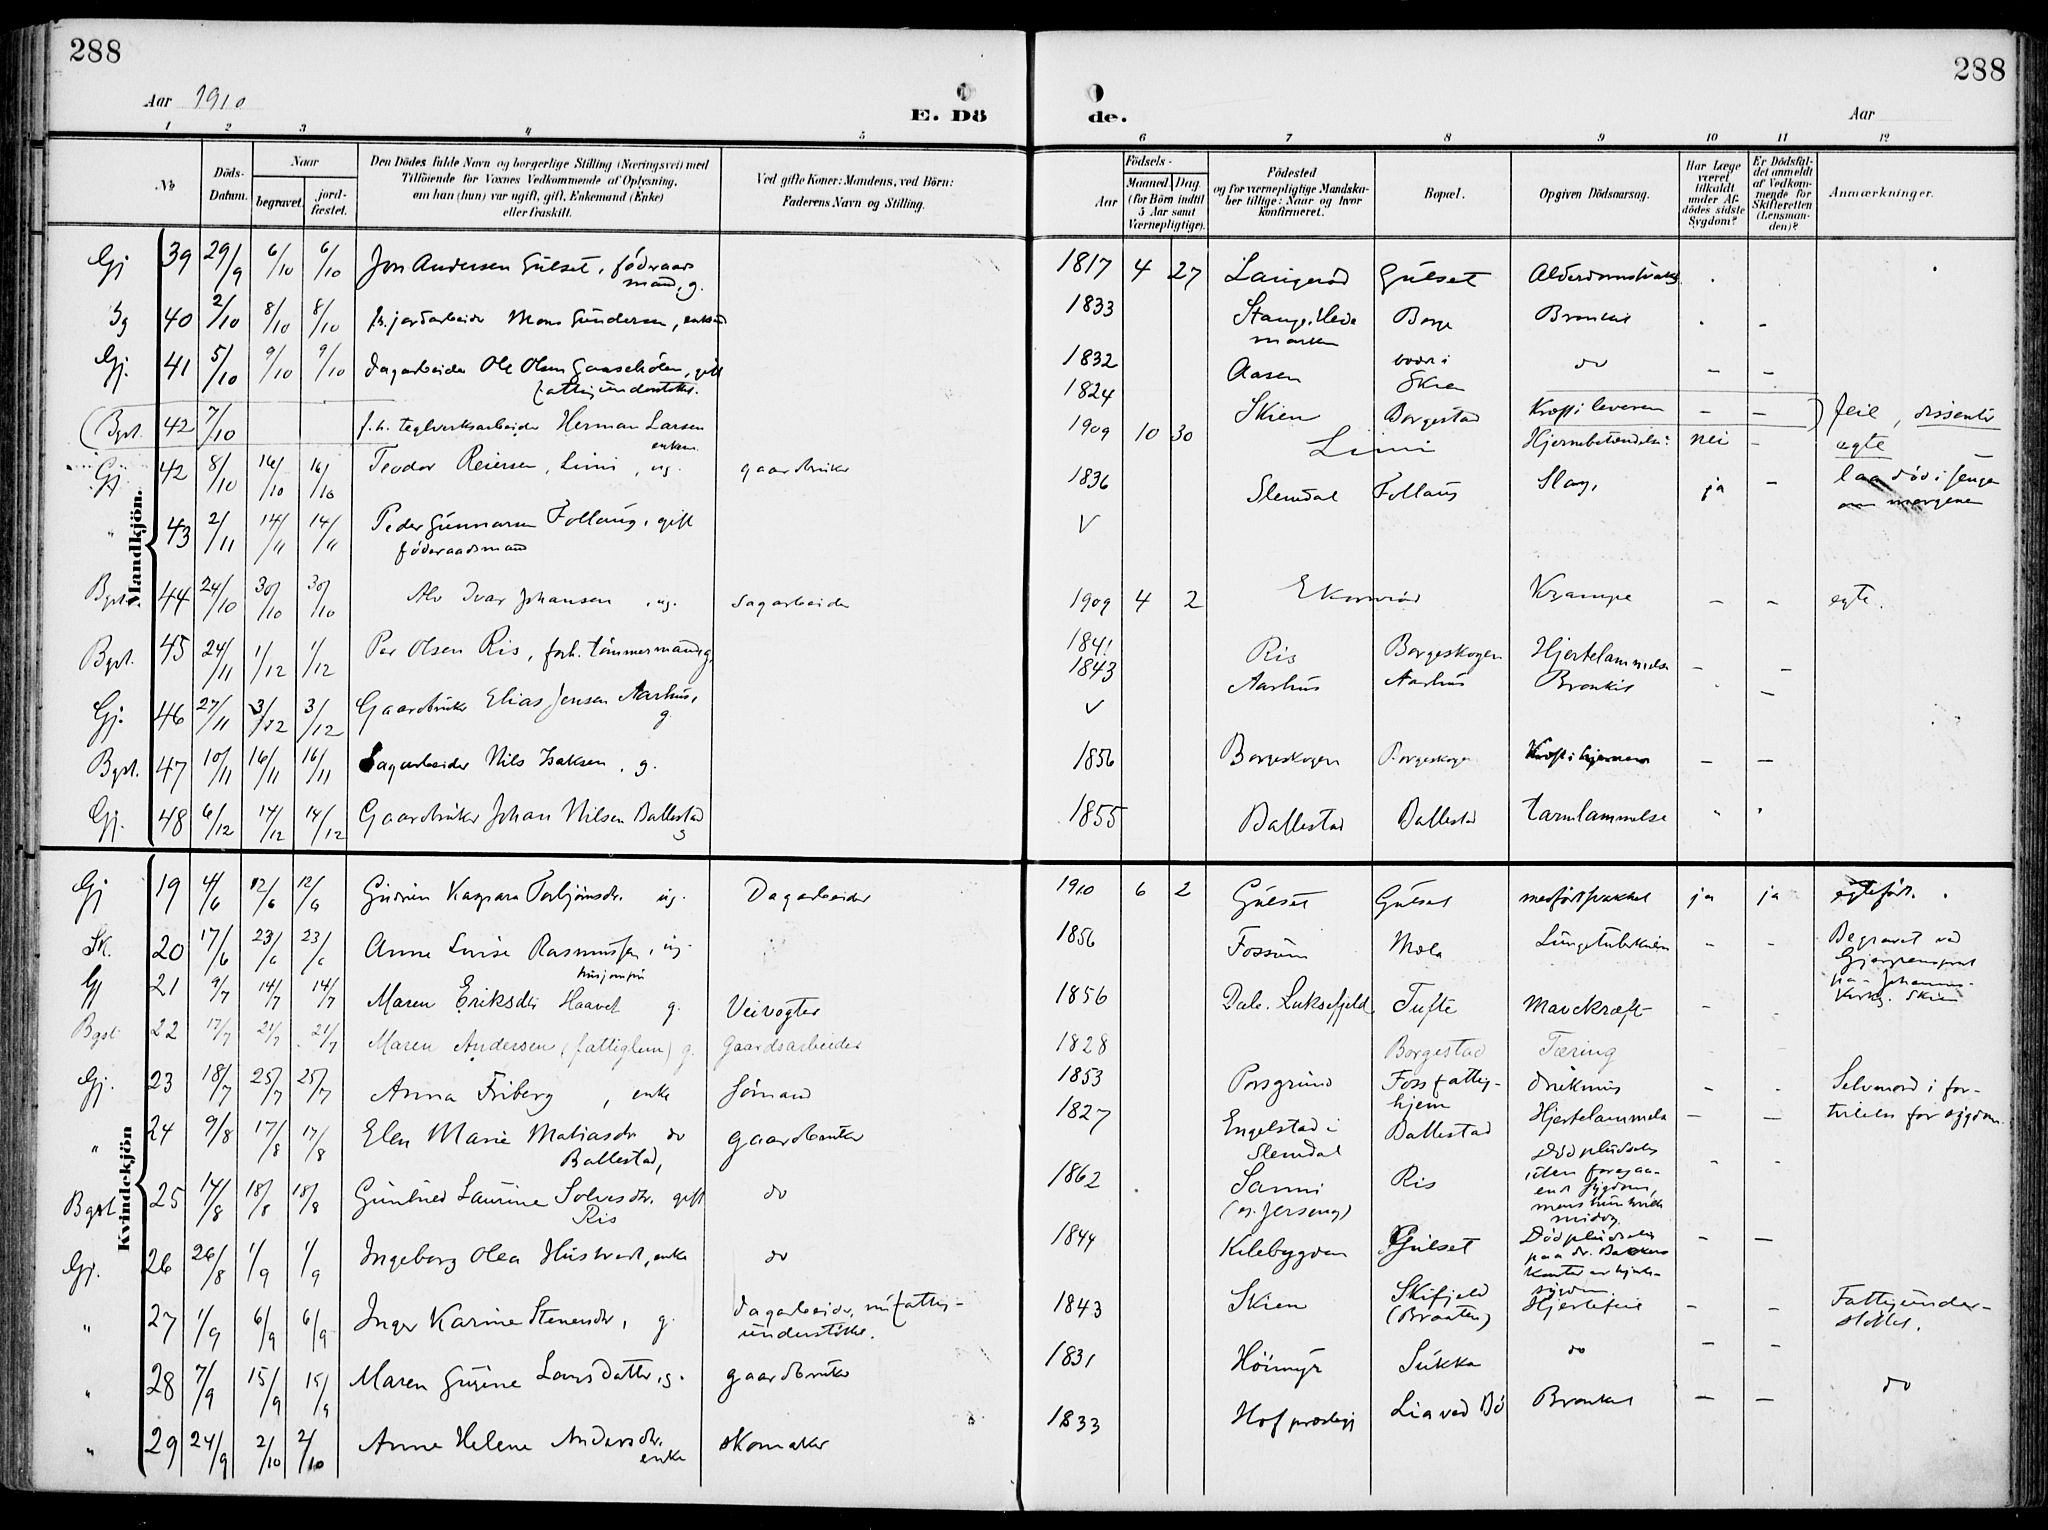 288
288
Aar 1910
E. Dö
de.
Aar
1 2 3 4 5 6 7 8 9 10 11 12
No
Döds-Datum.
Naar
begravet.
jord-fæstet.
Den Dödes fulde Navn og borgerlige Stilling (Næringsvei) med
Tilföiende for Voxnes Vedkommende af Oplysning,
om han (hun) var ugift, gift, Enkemand (Enke)
eller fraskilt.
Ved gifte Koner: Mandens, ved Börn:
Faderens Navn og Stilling.
Födsels-
Aar
Maaned. Dag.
(for Börn indtil
5 Aar samt
Værnepligtige).
Födested
og for værnepligtige Mandska-
ber tillige: Naar og hvor
konfirmeret.
Bopæl.
Opgiven Dödsaarsag.
Har Læge
været
tilkaldt
under Af-
dödes sidste
Sygdom?
Er Dödsfal-
det anmeldt
af Vedkom-
mende for
Skifteretten
(Lensman-
den)?
Anmærkninger.
Mandkjön.
Gj 39 29/9 6/10 6/10 Jon Andersen Gulset, föderaads
mand, g. 1817 4 27 Langerød Gulset
Bg 40 2/10 8/10 8/10 fh. jordarbeider Mons Gundersen, 1833 Stange, Hede
marken Borge Bronkit - -
Gj. 41 5/10 9/10 9/10 dagarbeider Ole Olsen gift
fattigunderstøttet. 1832 Aasen i
Skien do - -
Bgst. 42 7/10 f.h. teglverksarbeider Herman Larsen
enkem. 1824 Skien Borgestad Kræft i leveren - - feil, dissenter
Gj 42 8/10 16/10 16/10 Teodor Reiersen, Limi, ug. gaardbruker 1909 10 30 Limi Hjernebetændelse nei - ægte
" 43 2/11 14/11 14/11 Peder Gunnarsen Follaug, gift
föderaadsmand 1836 Slemdal Follaug Slag, ja - laa död i sengen
om morgenen
Bgst. 44 24/10 30/10 30/10 Alv Ivar Johansen, ug. Sagarbeider 1909 4 2 Ekornrød Krampe - - egte.
Bgst. 45 24/11 1/12 1/12 Per Olsen Ris, forh. tömmermand g. 1841 Ris Borgeskogen Hjertelammelse - -
Gj. 46 27/11 3/12 3/12 Gaardbruker Elias Jensen Aarhus,
g. 1843 Aarhus Aarhus Bronkit -
Bgst. 47 10/11 16/11 16/11 Sagarbeider Nils Isaksen, g. 1856 Borgeskogen Borgeskogen Kræft i hjernen - -
Gj. 48 6/12 14/12 14/12 Gaardbruker Johan Nilsen Ballestad
g 1855 Ballestad Ballestad tarmlammelse
Kvindekjön
Gj 19 4/6 12/6 12/6 Gudrun Kaspara Torbjörnsdr. ug. Dagarbeider 1910 6 2 Gulset Gulset medfödt svakhet ja ja egtefödt.
Sk. 20 17/6 23/6 23/6 Anne Lovise Rasmussen, ug.
husjomfru 1856 Fossum Mæla Lungetuberkulose - - Begravet ved
Gjerpens prest
fra Johannes
Kirke. Skien
Gj 21 9/7 14/7 14/7 Maren Eriksdtr Haavet g. Veivogter 1856 Dale. Luksefjeld Tufte Mavekræft -
Bgst 22 17/7 21/7 21/7 Maren Andersen (fattiglem) g. Gaardsarbeider 1828 Borgestad Tæring
Gj. 23 18/7 25/7 25/7 Anna Friberg, enke Sömand 1853 Porsgrund Foss fattig-
hjem druknet - - Selvmord i for-
tvilelse for sygdom.
" 24 9/8 17/8 17/8 Elen Marie Matiasdr do
Ballestad, gaardbruker 1827 Engelstad i
Slemdal Ballestad Hjertelammelse - -
Bgst 25 14/8 18/8 18/8 Gunhild Laurine Solvesdr. gift
Ris do 1862 Sanni
Ris Död pludselig
uten foregaa-
ende sygdom,
mens hun
middag. - -
Gj. 26 26/8 1/9 1/9 Ingeborg Olea Hustvedt, enke do 1844 Kilebygden Gulset Död pludselig
paa dr. Bakkes
kontor av hjerte-
sygdom - -
" 27 1/9 6/9 6/9 Inger Karine Stenersdr, g. dagarbeider, nu fattig-
understöttet. 1843 Skien Skifjeld
(Braaten) Hjertefeil - - Fattigunder-
stöttet.
" 28 7/9 15/9 15/9 Maren Gurine Larsdatter, g. gaardbruker 1831 Höimyr Sukka do - -
do
" 29 24/9 2/10 2/10 Anne Helene Andersdr.
enke skomaker 1833 Hof prestegj Lia ved Bö Bronkit - -